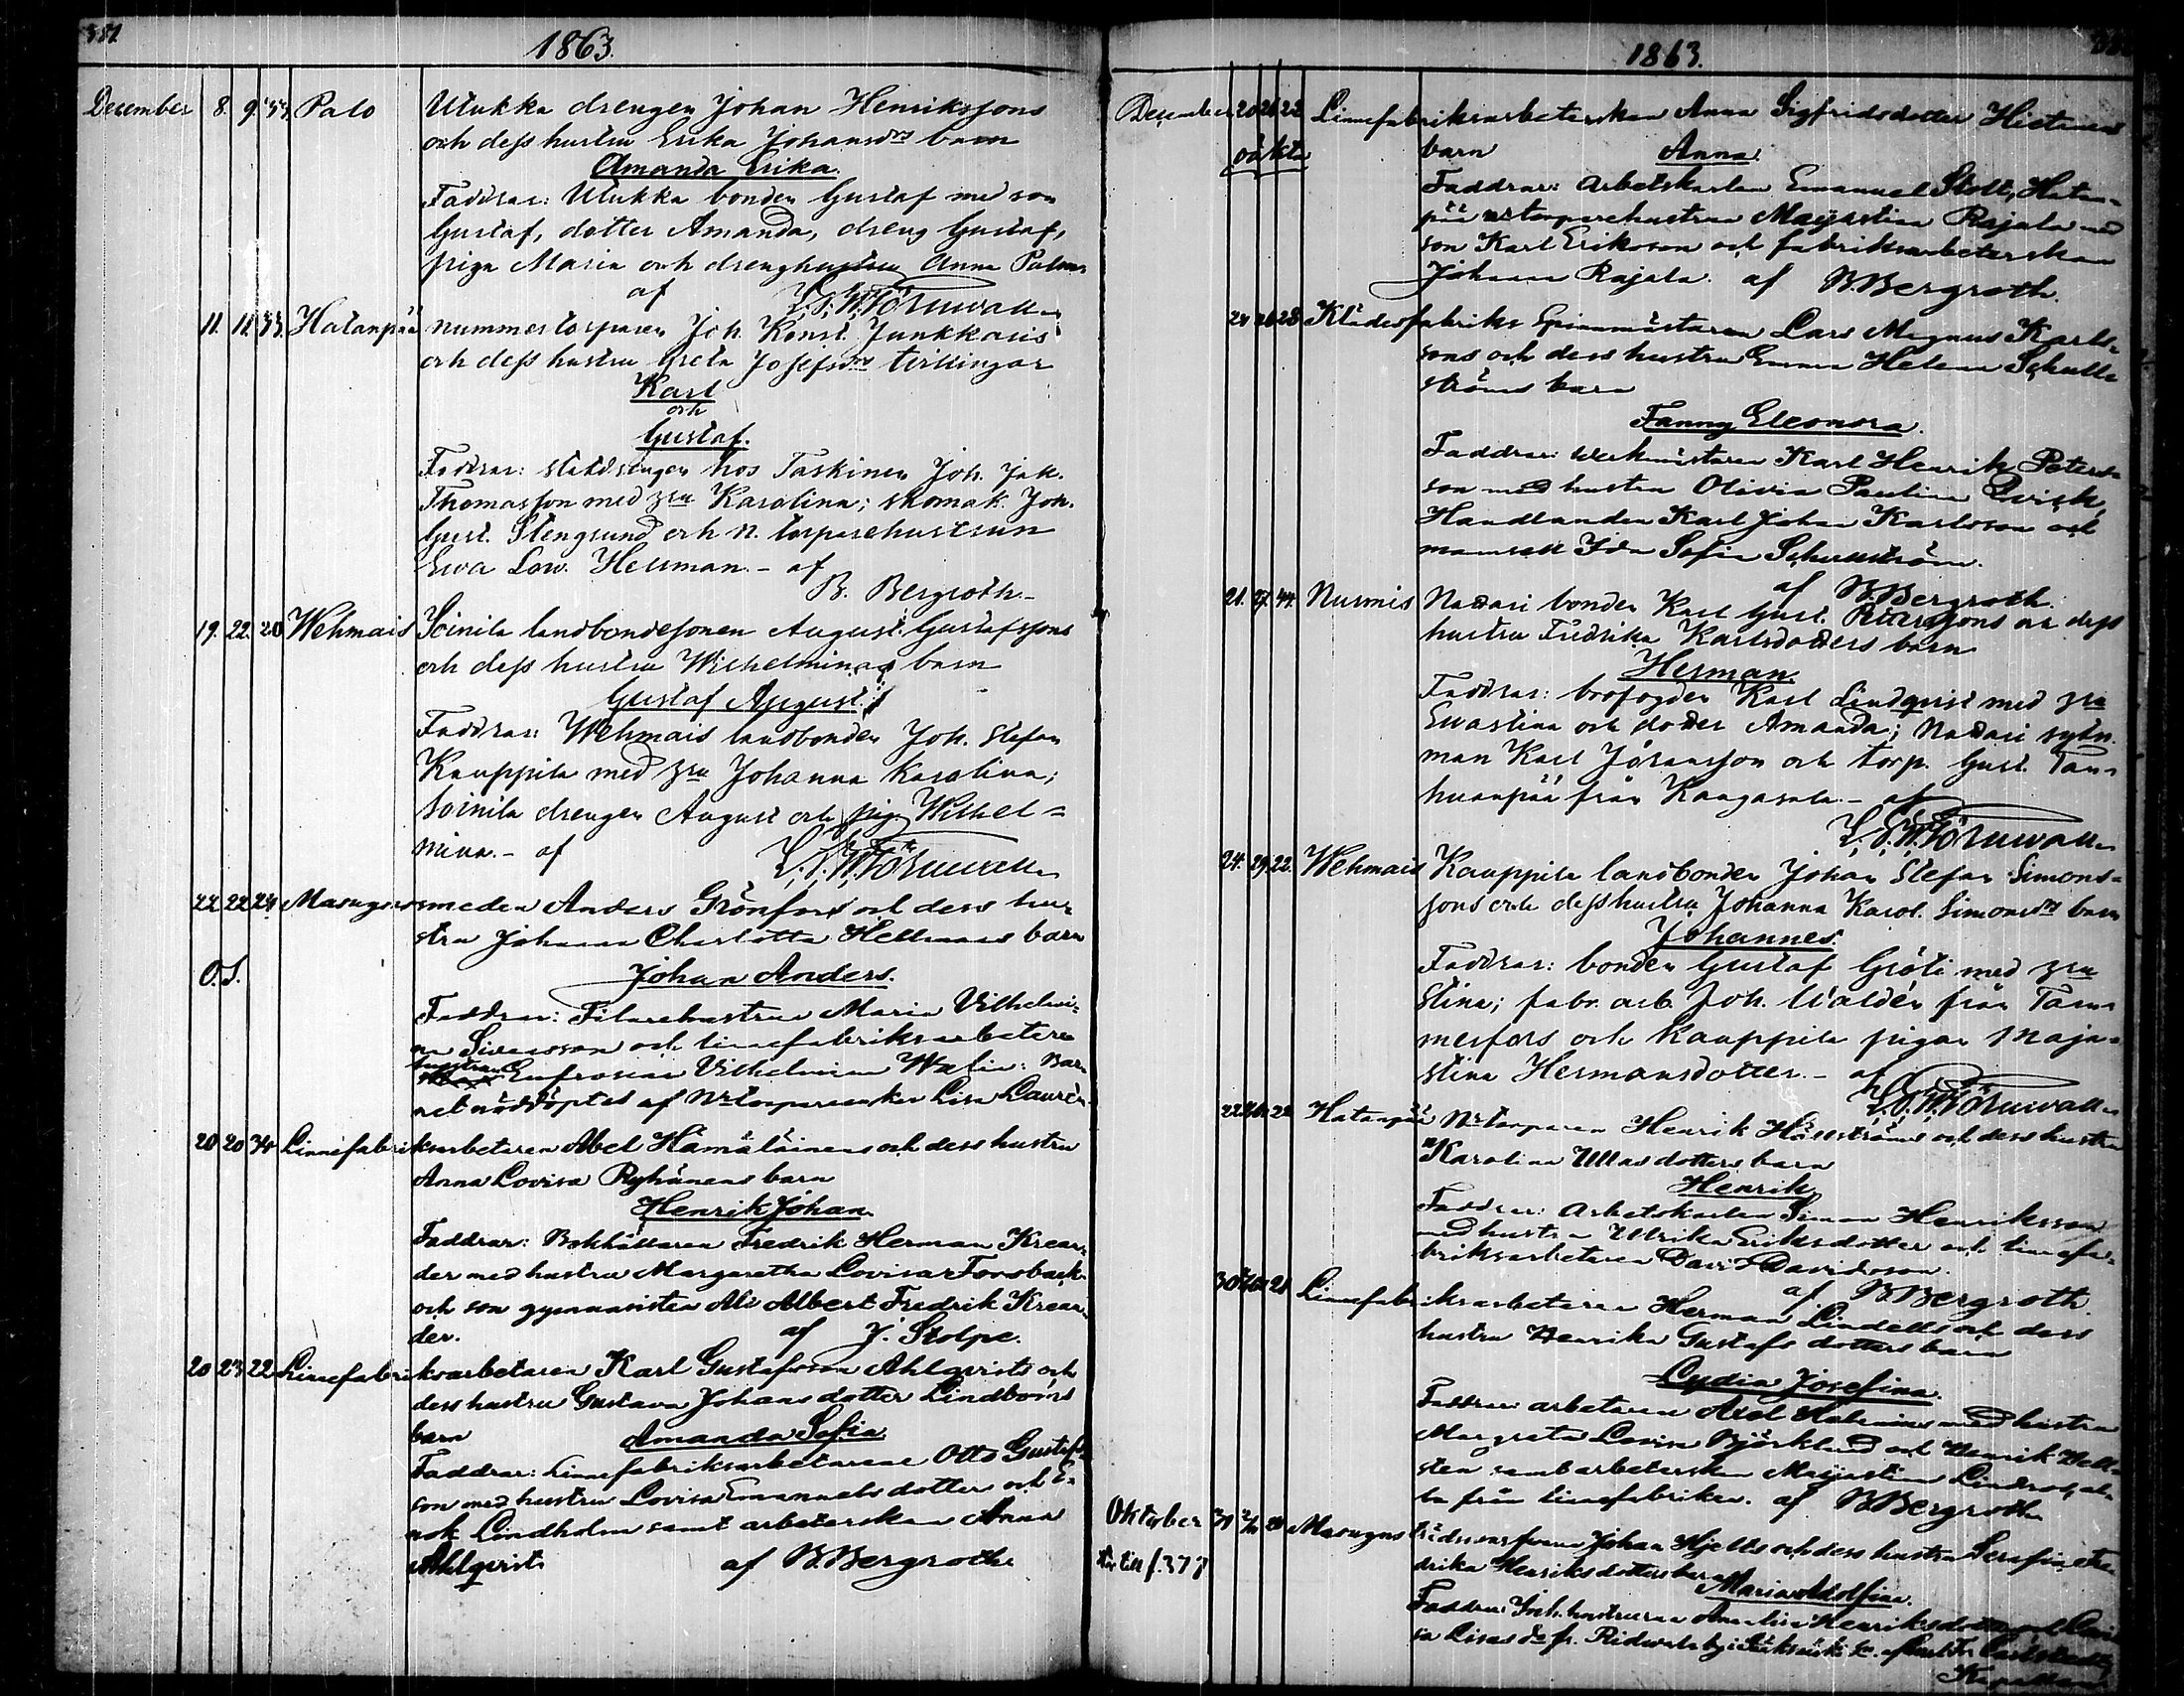 1863.
December 8. 9. 33. Palo Utukka drengen Johan Henrikssons
och dess hustru Erika Johansdrs barn
Amanda Erika.
Faddrar: Utukka bonden Gustaf med son
Gustaf, dotter Amanda, dreng Gustaf,
piga Maria och drenghustru Anna Palo
af
11. 11. 33. Hatanpää nummertorparen Joh. Konst. Junkkaris
och dess hustru Greta Josefsdrs tvillingar
Karl
och
Gustaf.
Faddrar: statdrengen hos Taskinen Joh. Jak.
Thomasson med hru Karolina; skomak. Joh.
Gust. Stengrund och n. torparehustrun
Ewa Low. Hellman. - af
B. Bergroth.-
19. 22. 20 Wehmais Soinila landbondesonen August Gustafssons
och dess hustru Wilhelminas barn
Gustaf August
Faddrar: Wehmais landbonden Joh. Stefan
Kauppila med hru Johanna Karolina;
Soinila drengen August och pig. Wilhel=
mina.- af
22 22 24 Masugnssmeden Anders Grönfors och dess hu=
stru Johanna Charlotta Hellmans barn
O.S.
Johan Anders.
Faddrar: Filarehustrun Maria Vilhelmi=
na Sivensson och linnefabriksarbetare
hustrun Eufrosine Vilhelmina Walin: Bar=
net nöddöptes af Nrtorpareenkan Lisa Laurén.
20 20 34 Linnefabriksarbetaren Abel Hämäläinens och dess hustru
Anna Lovisa Ryhänens barn
Henrik Johan.
Faddrar: Bokhållaren Fredrik Herman Krean=
der med hustru Margaretha Lovisa Forsbäck
och son gymnasisten Albert Fredrik Krean=
der. af J. Stolpe.
20 23 22 Linnefabriksarbetaren Karl Gustafsson Ahlqvists och
dess hustru Gustava Johansdotter Lindboms
barn Amanda Sofia
Faddrar: Linnefabriksarbetarene Otto Gustafs=
son med hustru Lovisa Emanuelsdotter och E=
nok Lindholm samt arbeterskan Anna
Ahlqvist af B. Bergroth
1863.
December 20 26 22 Linnefabriksarbeterskan Anna Sigfridsdotter Hietanens
oäkta barn Anna.
Faddrar: Arbetskarlen Emanuel Stolt, Hatan=
pää nr torparehustrun Majastina Rajala med
son Karl Eriksson och fabriksarbeterskan
Johanna Rajala. af B. Bergroth.
24 26 28 Klädesfabriks Spinnmästaren Lars Magnus Karls=
sons och dess hustru Emma Helena Schult=
ströms barn
Fanny Eleonora.
Faddrar: Werkmästaren Karl Henrik Peters=
son med hustru Olivia Paulina Qvick,
Handlanden Karl Johan Karlsson och
mamsell Ida Sofia Schultström.
af B. Bergroth.
21. 27. 44. Nurmis Naddari bonden Karl Gust. Petterssons och dess
hustru Fredrika Karlsdotters barn
Herman.
Faddrar: brofogden Karl Lindqvist med hru
Ewastina och dotter Amanda; Naddari sytn.
man Karl Johansson och torp. Gust. Tan=
huanpää från Kangasala.- af
24. 29. 22. Wehmais Kauppila landbonden Johan Stefan Simons=
sons och dess hustru Johanna Karol. Simonsdrs barn
Johannes.
Faddrar: bonden Gustaf Gröti med hru
Stina; fabr. arb. Joh. Waldén från Tam=
merfors och Kauppila pigan Maja=
stina Hermansdotter.- af
Hatanpää Nrtorparen Henrik Hällströms och dess hustru
Karolina Ullasdotters barn
Henrik
Faddrar: Arbetskarlen Simon Henriksson
med hustru Ulrika Eriksdotter och linnefa=
briksarbetaren David Davidsson.
af B. Bergroth.
Linnefabriksarbetaren Herman Lindells och dess
hustru Henrika Gustafsdotters barn
Lydia Josefina.
Faddrar: arbetaren Axel Helenius med hustru
Margreta Lovisa Björklund och Henrik Hell=
sten samt arbeterskan Majastina
från linnefabriken. af B. Bergroth
Oktober Masugns Johan Hjelts och dess hustru Serafina Fre=
hör till f. 377 drika Henriksdotters barn
Maria Adolfina.
Faddrar: hustrurna Amalia Henriksdotter och